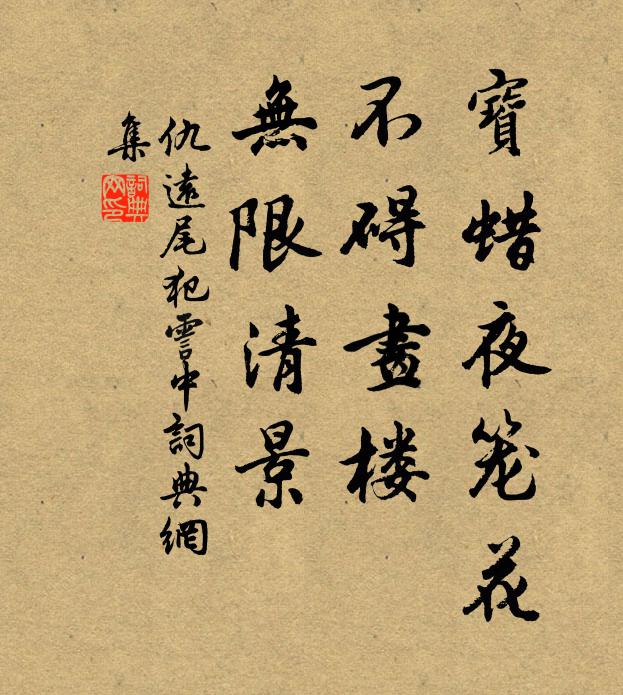 寶蜡夜笼花
不碍畫楼
無限清景
仇遠尾犯雪中詞典網
集
詞典网印